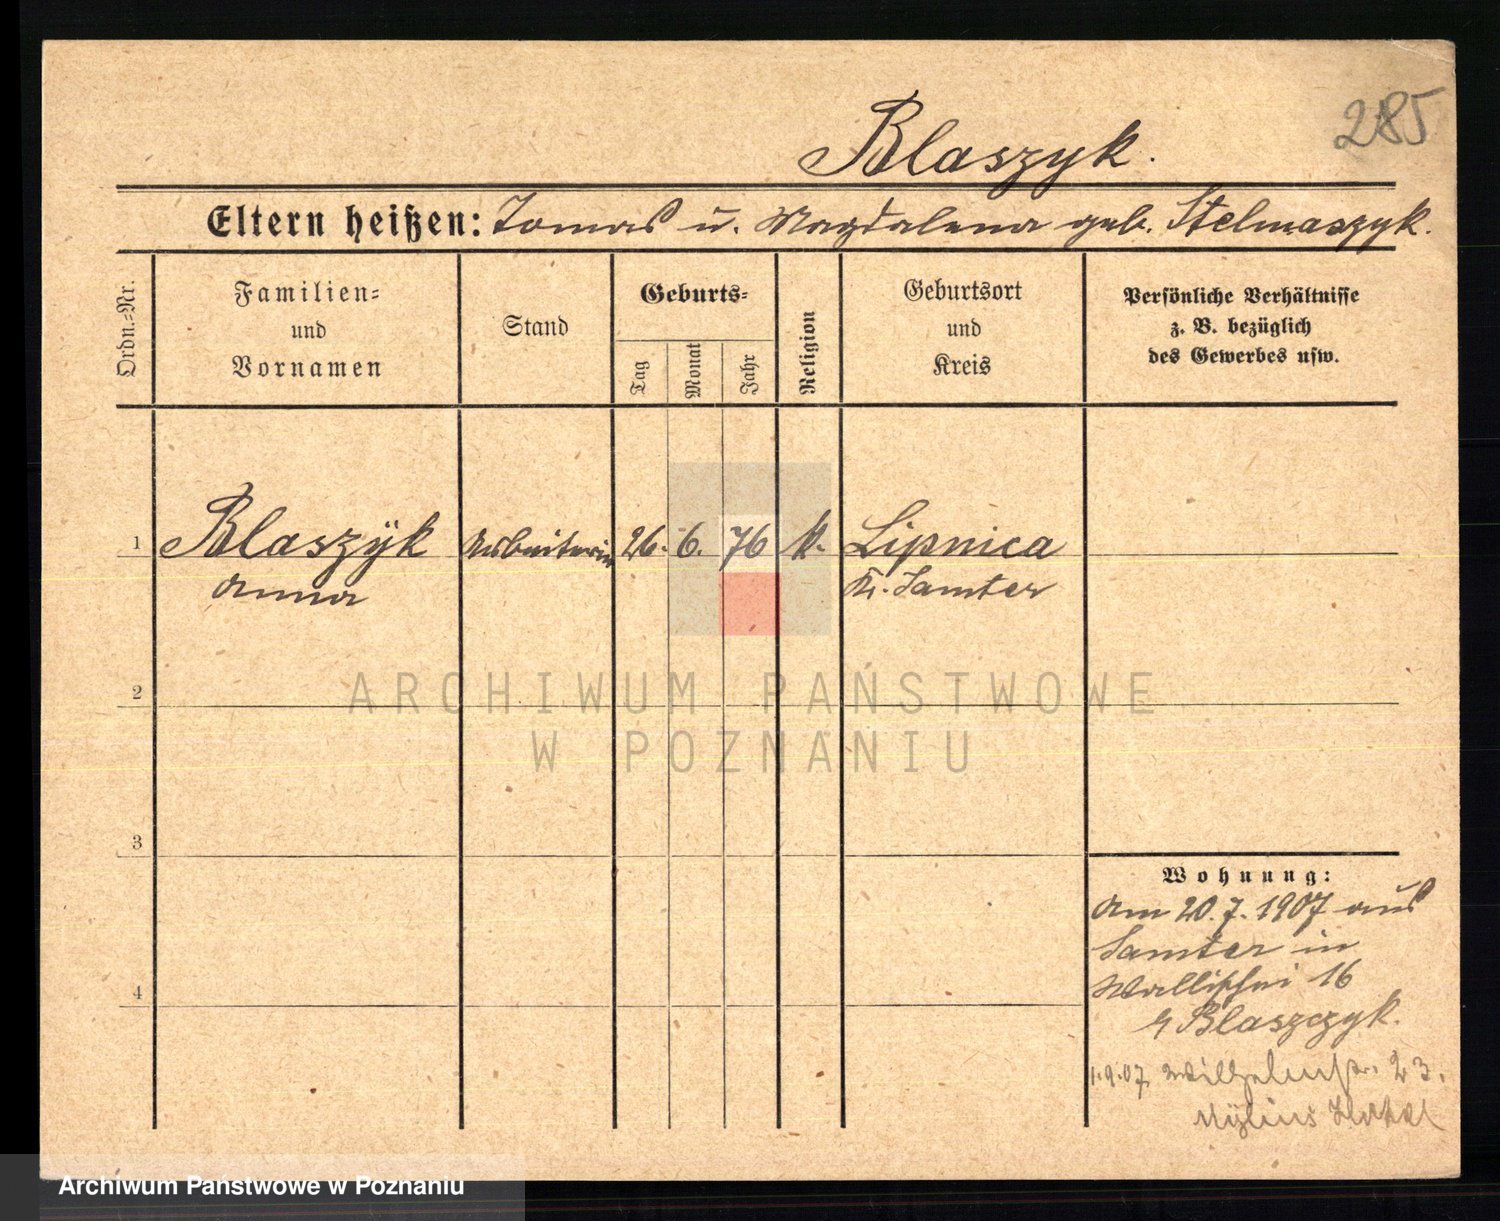 285
Blaszyk.
Eltern heißen: Tomas u. Magdalena geb. Stelmaszyk.
Ordn.-Nr.
Familien-
und
Vornamen
Stand
Geburts-
Tag
Monat
Jahr
Religion
Geburtsort
und
Kreis
Persönliche Verhältnisse
z. B. bezüglich
des Gewerbes usw.
1 Blaszÿk Arbeiterin 26. 6. 76 k. Lipnica
Anna Kr. Samter
2
3
4
ARCHIWUM PAŃSTWOWE
W POZNANIU
Wohnung:
Am 20.7.1907 aus
Samter in
Wallischei 16
Blaszczyk.
1.9.07. Wilhelmstr. 23.
Mÿlius Hotel
Archiwum Państwowe w Poznaniu